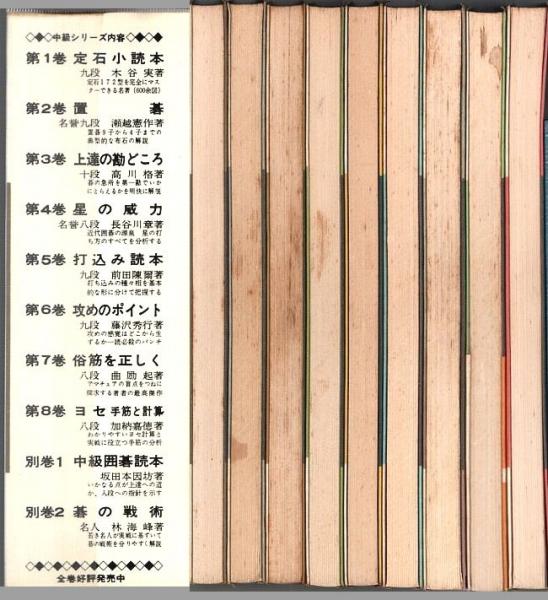 ◇◆◇中級シリーズ内容◇◆◇◆
第1巻 定石小読本
九段 木谷実著
定石172型を完全にマス
ターできる名著(600余図)
第2巻 置碁
名誉九段 瀬越憲作著
置碁9子から4子までの
典型的な布石の解説
第3巻 上達の勘どころ
十段 高川格著
碁の急所を第一勘でいか
にとらえるかを明快に解説
第4巻 星の威力
名誉八段 長谷川章著
近代囲碁の源泉 星の打
ち方のすべてを分析する
第5巻 打込み読本
九段 前田陳爾著
打ち込みの種々相を基本
的な形に分けて把握する
第6巻 攻めのポイント
九段 藤沢秀行著
攻めの感覚はどこから生
ずるか―読必殺のパンチ
第7巻 俗筋を正しく
八段 曲励起著
アマチュアの盲点をつねに
探求する著者の最高傑作
第8巻 ヨセ手筋と計算
八段 加納嘉徳著
わかりやすいヨセ計算と
実戦に役立つ手筋の分析
別巻1 中級囲碁読本
坂田本因坊著
いかなる点が上達への道
か、入段への指針を示す
別巻2 碁の戦術
名人 林海峰著
若き名人が実戦に基ずいて
碁の戦術を分りやすく解説
全巻好評発売中